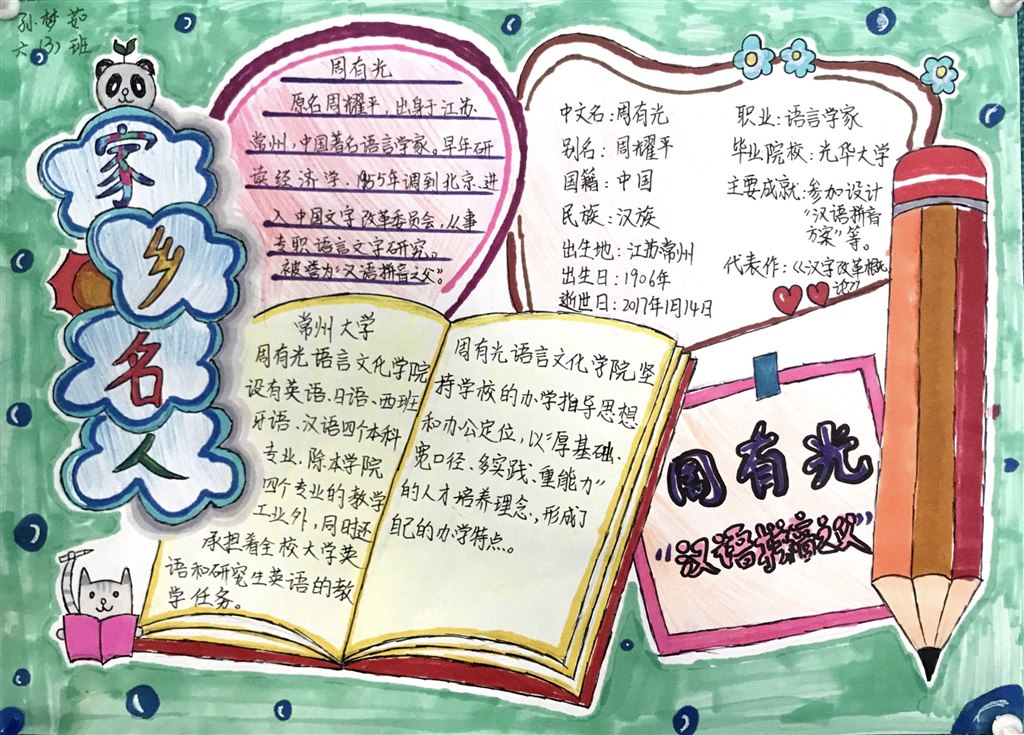 孙梦茹
六(3)班
家乡名人
周有光
原名周耀平，出身于江苏
常州，中国著名语言学家。早年研
读经济学、1955年调到北京、进
入中国文字改革委员会，从事
专职语言文字研究。
被誉为“汉语拼音之父”。
中文名：周有光
别名：周耀平
国籍：中国
民族：汉族
出生地：江苏常州
出生日：1906年
逝世日：2017年1月14日
职业：语言学家
毕业院校：光华大学
主要成就：参加设计
“汉语拼音
方案”等。
代表作：《汉字改革概
论》
常州大学
周有光语言文化学院
设有英语、日语、西班
牙语、汉语四个本科
专业，除本学院
四个专业的教学
工业外，同时还
承担着全校大学英
语和研究生英语的教
学任务。
周有光语言文化学院坚
持学校的办学指导思想
和办公定位，以“厚基础、
宽口径、多实践、重能力”
的人才培养理念，形成了
自己的办学特点。
周有光
“汉语拼音之父”